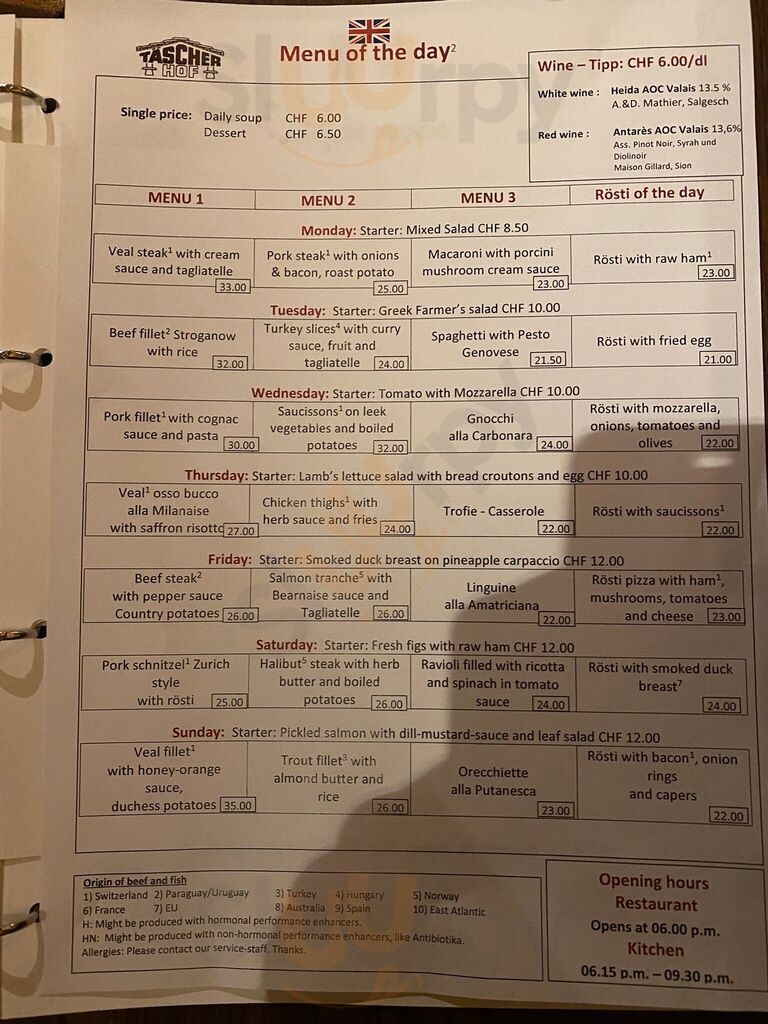 TÄSCHER
HOF
Menu of the day²
Single price: Daily soup CHF 6.00
Dessert CHF 6.50
Wine – Tipp: CHF 6.00/dl
White wine : Heida AOC Valais 13.5 %
A.&D. Mathier, Salgesch
Red wine : Antarès AOC Valais 13,6%
Ass. Pinot Noir, Syrah und
Diolinoir
Maison Gillard, Sion
MENU 1 MENU 2 MENU 3 Rösti of the day
Monday: Starter: Mixed Salad CHF 8.50
Veal steak¹ with cream
sauce and tagliatelle
33.00
Pork steak¹ with onions
& bacon, roast potato
25.00
Macaroni with porcini
mushroom cream sauce
23.00
Rösti with raw ham¹
23.00
Tuesday: Starter: Greek Farmer's salad CHF 10.00
Beef fillet² Stroganow
with rice
32.00
Turkey slices⁴ with curry
sauce, fruit and
tagliatelle 24.00
Spaghetti with Pesto
Genovese 21.50
Rösti with fried egg
21.00
Wednesday: Starter: Tomato with Mozzarella CHF 10.00
Pork fillet¹ with cognac
sauce and pasta 30.00
Saucissons¹ on leek
vegetables and boiled
potatoes 32.00
Gnocchi
alla Carbonara 24.00
Rösti with mozzarella,
onions, tomatoes and
olives 22.00
Thursday: Starter: Lamb's lettuce salad with bread croutons and egg CHF 10.00
Veal¹ osso bucco
alla Milanaise
with saffron risotto 27.00
Chicken thighs¹ with
herb sauce and fries
24.00
Trofie - Casserole
22.00
Rösti with saucissons¹
22.00
Friday: Starter: Smoked duck breast on pineapple carpaccio CHF 12.00
Beef steak²
with pepper sauce
Country potatoes 26.00
Salmon tranche⁵ with
Bearnaise sauce and
Tagliatelle 26.00
Linguine
alla Amatriciana
22.00
Rösti pizza with ham¹,
mushrooms, tomatoes
and cheese 23.00
Saturday: Starter: Fresh figs with raw ham CHF 12.00
Pork schnitzel¹ Zurich
style
with rösti 25.00
Halibut⁵ steak with herb
butter and boiled
potatoes 26.00
Ravioli filled with ricotta
and spinach in tomato
sauce 24.00
Rösti with smoked duck
breast⁷
24.00
Sunday: Starter: Pickled salmon with dill-mustard-sauce and leaf salad CHF 12.00
Veal fillet¹
with honey-orange
sauce,
duchess potatoes 35.00
Trout fillet³ with
almond butter and
rice
26.00
Orecchiette
alla Putanesca
23.00
Rösti with bacon¹, onion
rings
and capers
22.00
Origin of beef and fish
1) Switzerland 2) Paraguay/Uruguay 3) Turkey 4) Hungary 5) Norway
6) France 7) EU 8) Australia 9) Spain 10) East Atlantic
H: Might be produced with hormonal performance enhancers.
HN: Might be produced with non-hormonal performance enhancers, like Antibiotika.
Allergies: Please contact our service-staff. Thanks.
Opening hours
Restaurant
Opens at 06.00 p.m.
Kitchen
06.15 p.m. – 09.30 p.m.